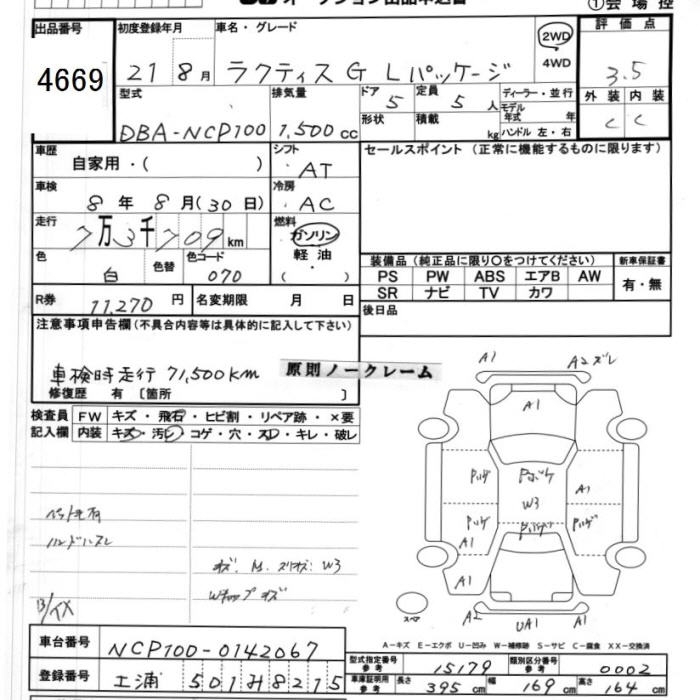 オークション出品申込書
①会場控
出品番号
4669
初度登録年月
21 8月
車名・グレード
ラクティス G Lパッケージ
2WD
4WD
評価点
3.5
外装 内装
C C
型式
DBA-NCP100
排気量
1,500 cc
ドア
5
定員
5人
形状
積載
kg
ディーラー・並行
モデル年式 年
ハンドル 左・右
車歴
自家用・( )
シフト
AT
セールスポイント (正常に機能するものに限ります)
車検
8年 8月(30日)
冷房
AC
走行
7万3千709km
燃料
ガソリン
軽油
( )
色
白
色替
色コード
070
装備品 (純正品に限り○をつけてください)
新車保証書
PS PW ABS エアB AW
SR ナビ TV カワ
有・無
R券
11,270円
名変期限 月 日
後日品
注意事項申告欄(不具合内容等は具体的に記入して下さい)
車検時走行 71,500km
原則ノークレーム
修復歴 有 〔箇所 〕
検査員記入欄
FW キズ・飛石・ヒビ割・リペア跡・×要
内装 キズ・汚レ・コゲ・穴・スレ・キレ・破レ
ペット毛有
ハンドルスレ
W3
A1
A2ズレ
A1
W3
A1
A1
A1
A2
UA1
A1
スペア
車台番号
NCP100-0142067
登録番号
土浦 501 8215
A―キズ E―エクボ U―凹み W―補修跡 S―サビ C―腐食 XX―交換済
型式指定番号 参考
15179
類別区分番号 参考
0002
車庫証明用 参考
長さ 395cm
幅 169cm
高さ 164cm